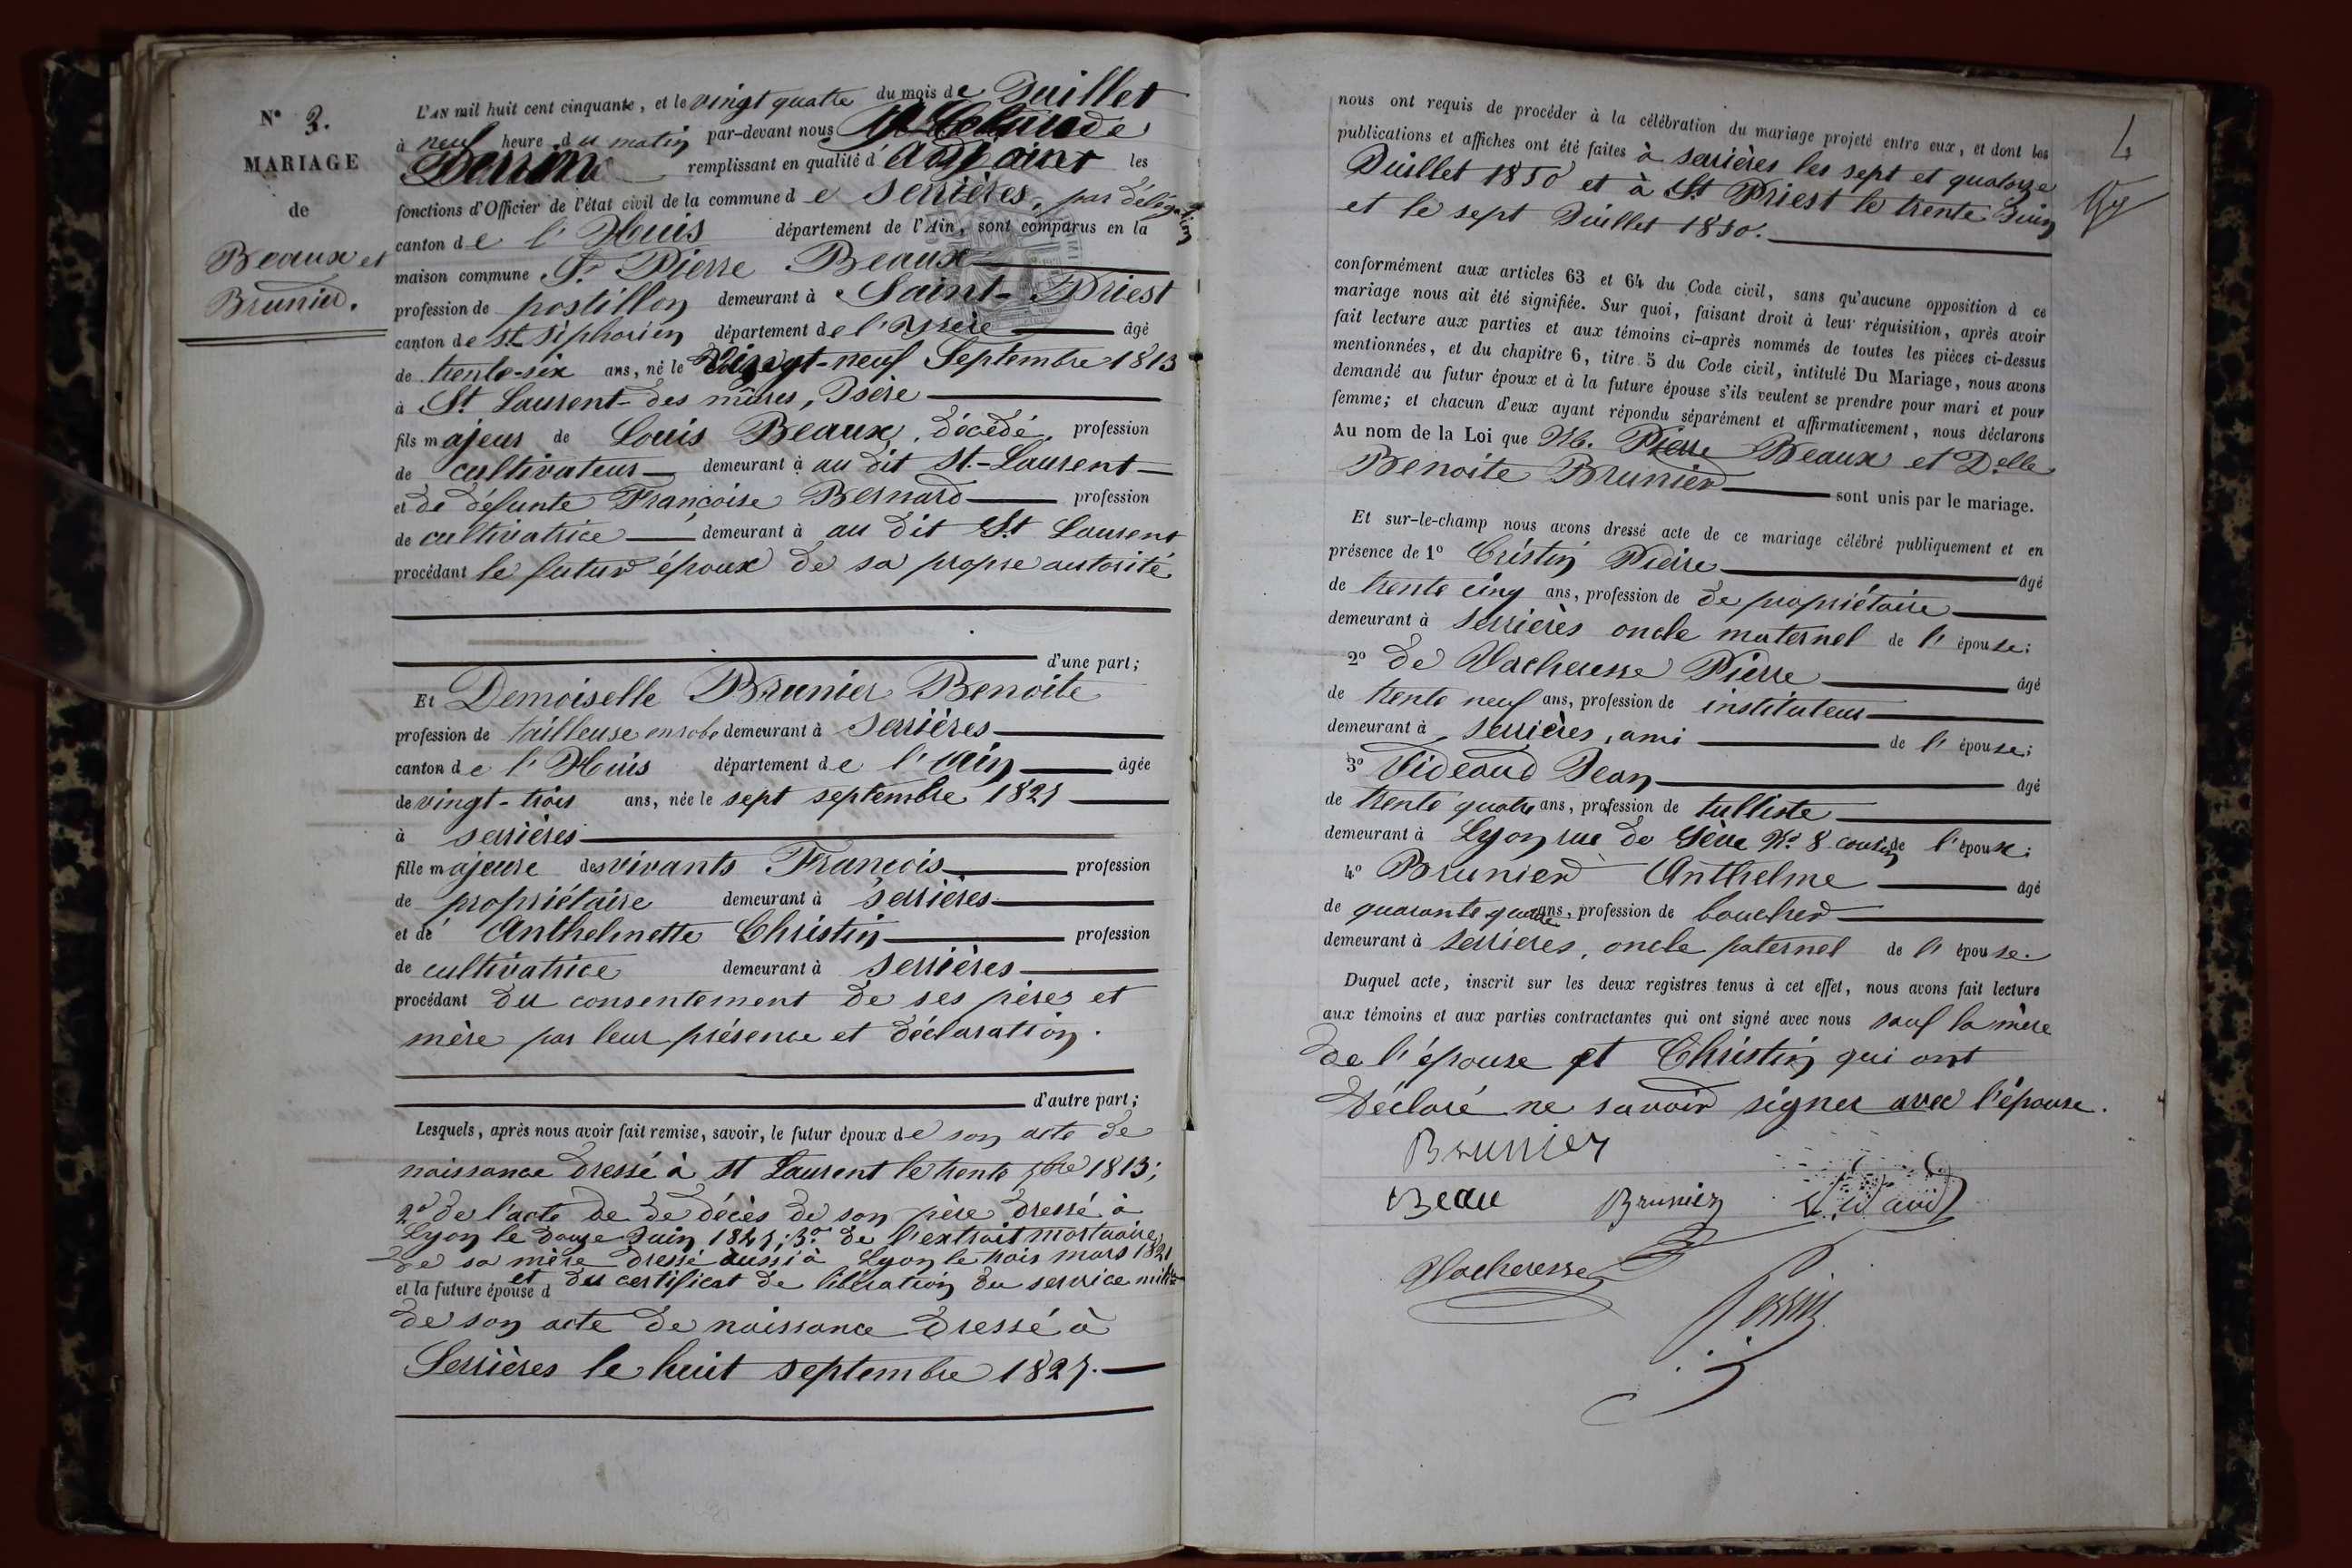 N° 3.
MARIAGE
de
Beaux et
Brunier.
L'AN mil huit cent cinquante, et le vingt quatre du mois de Juillet
à neuf heure du matin par-devant nous Claude
Perrin remplissant en qualité d'adjoint les
fonctions d'Officier de l'état civil de la commune de Serrières, par délégation
canton de l'Huis département de l'Ain, sont comparus en la
maison commune Sr Pierre Beaux
profession de postillon demeurant à Saint-Priest
canton de St Siphorien département de l'Ysère âgé
de trente-six ans, né le Vingt-neuf Septembre 1813
à St Laurent-des mûres, Isère
fils majeur de Louis Beaux, décédé, profession
de cultivateur demeurant à au dit St.-Laurent
et de défunte Françoise Bernard profession
de cultivatrice demeurant à au dit St Laurent
procédant le futur époux de sa propre autorité
d'une part;
Et Demoiselle Brunier Benoite
profession de tailleuse en robe demeurant à Serrières
canton de l'Huis département de l'Ain âgée
de vingt-trois ans, née le sept septembre 1827
à serrières
fille majeure des vivants François profession
de propriétaire demeurant à serrières
et de Anthelmette Christin profession
de cultivatrice demeurant à serrières
procédant du consentement de ses père et
mère par leur présence et déclaration.
d'autre part;
Lesquels, après nous avoir fait remise, savoir, le futur époux de son acte de
naissance dressé à St Laurent le trente 7bre 1813;
2° de l'acte de de décès de son père dressé à
Lyon le douze Juin 1827; 3° de l'extrait mortuaire
de sa mère dressé aussi à Lyon le trois mars 1821
et du certificat de libération du service milit.re
et la future épouse d
de son acte de naissance dressé à
Serrières le huit septembre 1827.
nous ont requis de procéder à la célébration du mariage projeté entre eux, et dont les
publications et affiches ont été faites à serrières les sept et quatorze
Juillet 1850 et à St Priest le trente Juin
et le sept Juillet 1850.
conformément aux articles 63 et 64 du Code civil, sans qu'aucune opposition à ce
mariage nous ait été signifiée. Sur quoi, faisant droit à leur réquisition, après avoir
fait lecture aux parties et aux témoins ci-après nommés de toutes les pièces ci-dessus
mentionnées, et du chapitre 6, titre 5 du Code civil, intitulé Du Mariage, nous avons
demandé au futur époux et à la future épouse s'ils veulent se prendre pour mari et pour
femme; et chacun d'eux ayant répondu séparément et affirmativement, nous déclarons
Au nom de la Loi que M. Pierre Beaux et Delle
Benoite Brunier sont unis par le mariage.
Et sur-le-champ nous avons dressé acte de ce mariage célébré publiquement et en
présence de 1° Cristin Pierre âgé
de trente cinq ans, profession de de propriétaire
demeurant à serrières oncle maternel de l'épouse;
2° de Vacheresse Pierre âgé
de trente neuf ans, profession de instituteur
demeurant à serrières, ami de l'épouse;
3° Videaud Jean âgé
de trente quatre ans, profession de tulliste
demeurant à Lyon rue de Sève N° 8 cousin de l'épouse;
4° Brunier Anthelme âgé
de quarante quatre ans, profession de boucher
demeurant à serrières, oncle paternel de l'épouse.
Duquel acte, inscrit sur les deux registres tenus à cet effet, nous avons fait lecture
aux témoins et aux parties contractantes qui ont signé avec nous sauf la mère
de l'épouse et Christin qui ont
déclaré ne savoir signer avec l'épouse.
Brunier
Beau Brunier Vidaud
Vacheresse
Perrin